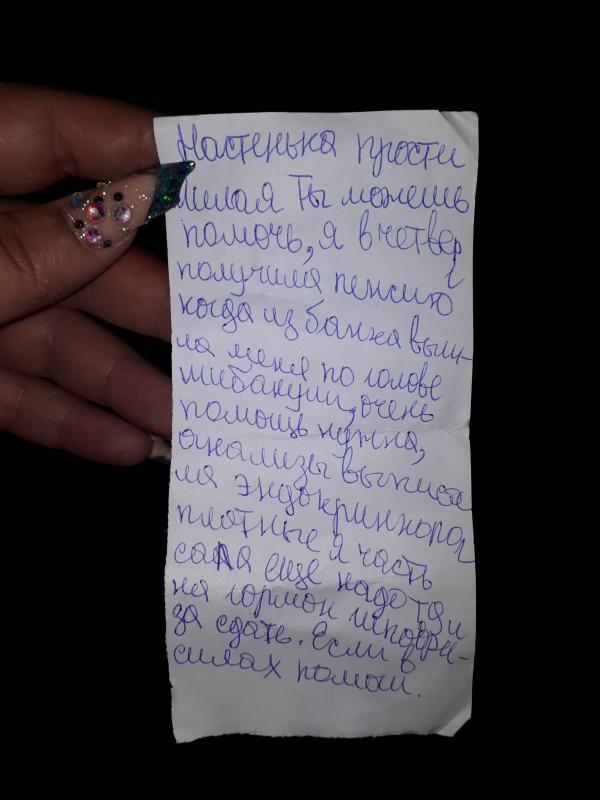 Настенька прости
милая Ты можешь
помочь, я в четверг
получила пенсию
когда из банка выш-
ла меня по голове
шибанули, очень
помощь нужна,
анализы выписа
ла эндокринноролог
платные я часть
сала еще надо
на гормон
за сдать. Если в
силах помош.